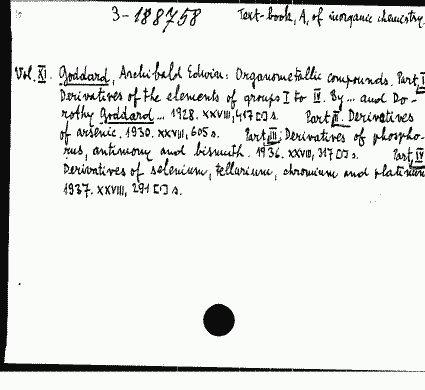 3-188758 Text-book, A, of inorganic chemistry.
Vol. XI. Goddard, Archibald Edwin: Organometallic compounds. Part I.
Derivatives of the elements of groups I to IV. By ... and Do-
rothy Goddard ... 1928. XXVIII, 417 [1] s. Part II. Derivatives
of arsenic. 1930. XXVIII, 605 s. Part III. Derivatives of phospho-
rus, antimony and bismuth. 1936. XXVIII, 317 [1] s. Part IV.
Derivatives of selenium, tellurium, chromium and platinum
1937. XXVIII, 291 [1] s.